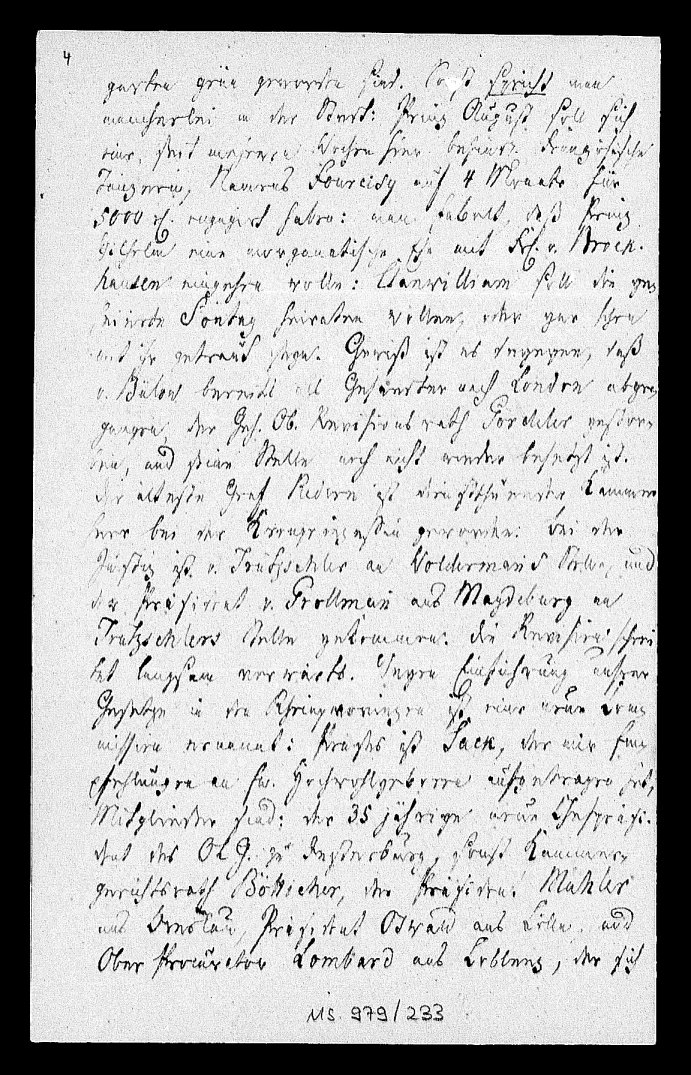 4
garten grün geworden sind. Sonst spricht man
mancherlei in der Stadt: Prinz August soll sich
eine, seit mehreren Wochen hier befindl. französische
Tänzerin, Namens Fourcisy auf 4 Monate für
5000 rh. engagirt haben: man fabelt, daß Prinz
Wilhelm eine morganatische Ehe mit Frl. v. Brock-
hausen eingehen wolle: Clanwilliam soll die gef
feierte Sontag heiraten wollen, oder gar schon
mit ihr getraut seyn. Gewiß ist es dagegen, daß
v. Bülow bereits als Gesandter nach London abge-
gangen, der Geh. Ob. Revisions rath Goedeler gestor-
ben, und seine Stelle noch nicht wieder besetzt ist.
Der älteste Graf Redern ist diensthuender Kammer
herr bei der Kronprinzessin geworden. Bei der
Justiz ist v. Trützschler an Woldermanns Stelle, und
der Präsident v. Grollman aus Magdeburg an
Trützschlers Stelle gekommen. Die Revision schrei
tet langsam vorwärts. Wegen Einführung unsrer
Gesetze in den Rheinprovinzen ist eine neue Com
mission ernannt: Präses ist Sack, der mir Em
pfehlungen an Ew. Hochwohlgeboren aufgetragen hat,
Mitglieder sind: der 35 jährige neue Chefpräsi-
dent des OLG. zu Insterburg, sonst Kammer-
gerichtsrath Bötticher, der Präsident Mühler
aus Breslau, Präsident Oswald aus Cölln, und
Ober Procurator Lombard aus Coblenz, der sich
MS. 979/233